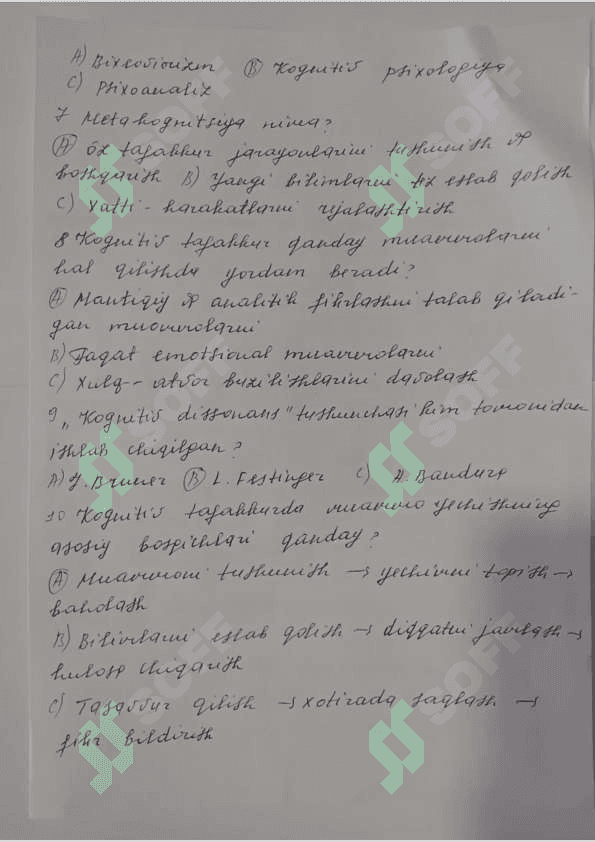 A) Bixeviorizm (B) Kognitiv psixologiya
C) Psixoanaliz
7 Metakognitsiya nima?
(A) Oz tafakkur jarayonlarini tushunish va
boshqarish B) Yangi bilimlarni tez eslab qolish
C) Xatti-harakatlarni rejalashtirish
8 Kognitiv tafakkur qanday muammolarni
hal qilishda yordam beradi?
(A) Mantiqiy va analitik fikrlashni talab qiladi-
gan muammolarni
B) Faqat emotsional muammolarni
C) Xulq-atvor buzilishlarini davolash
9 „Kognitiv dissonans" tushunchasi kim tomonidan
ishlab chiqilgan?
A) J. Bruner (B) L. Festinger C) A. Bandura
10 Kognitiv tafakkurda muammo yechishning
asosiy bosqichlari qanday?
(A) Muammoni tushunish → yechimni topish →
baholash
B) Bilimlarni eslab qolish → diqqatni jamlash →
hulosa chiqarish
C) Tasavvur qilish → xotirada saqlash →
fikr bildirish
SOFF
SOFF
SOFF
SOFF
SOFF
SOFF